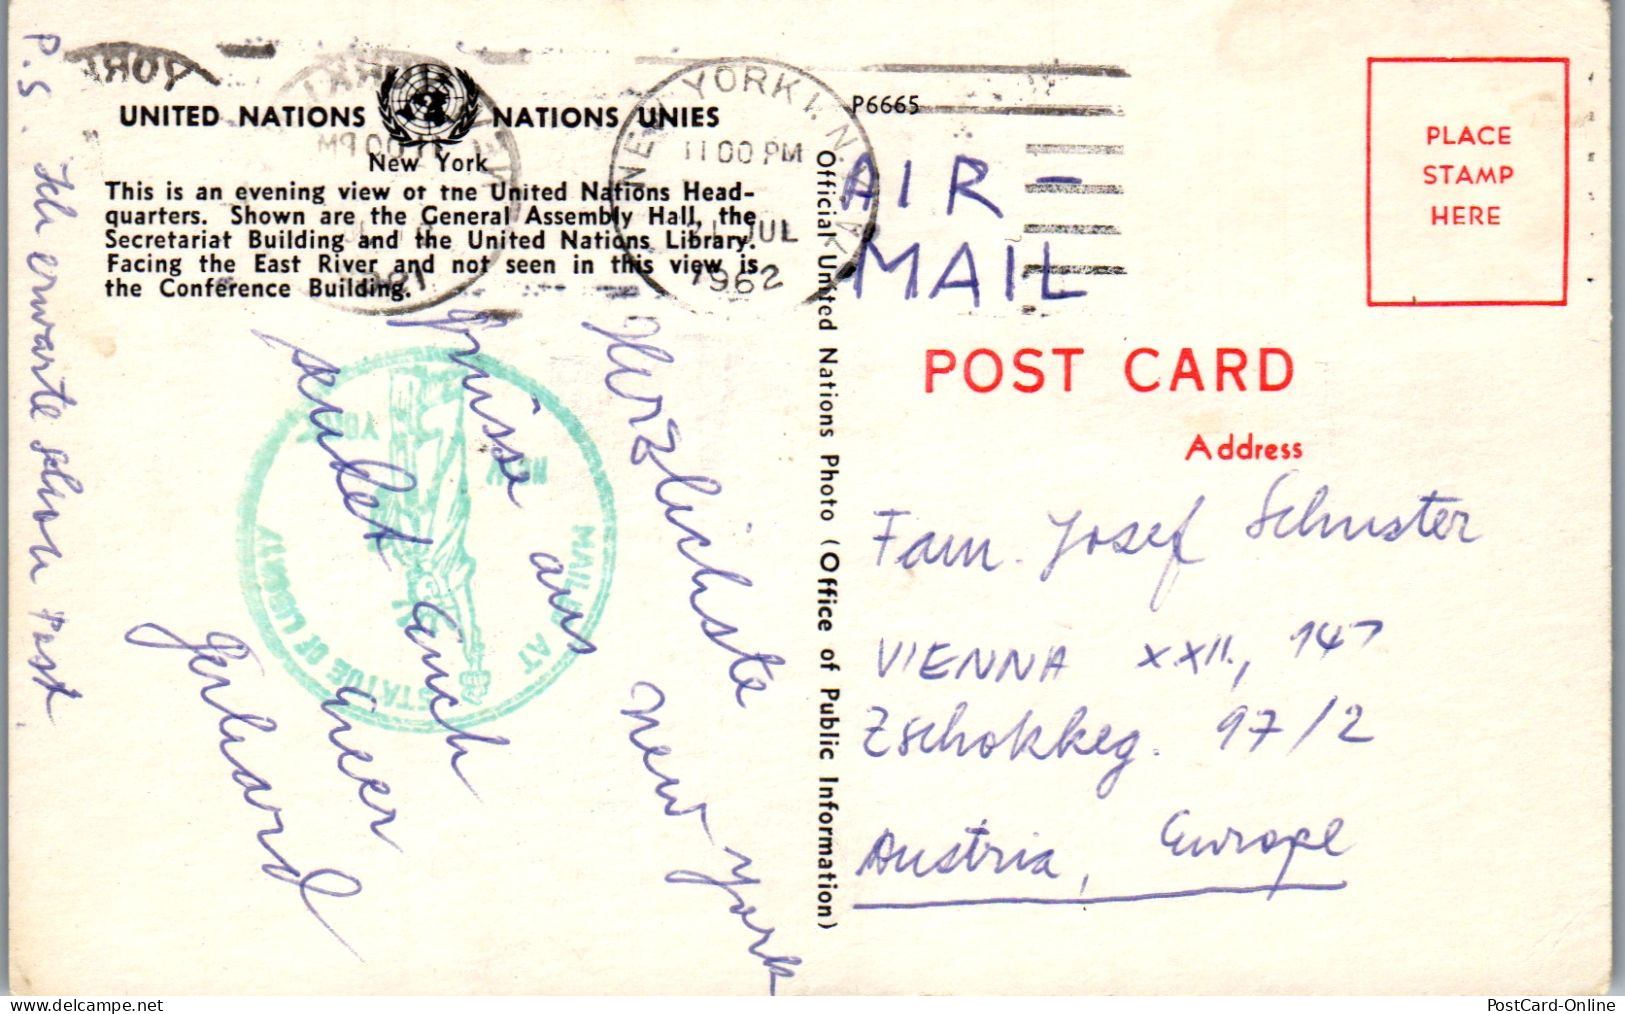 UNITED NATIONS NATIONS UNIES
New York
This is an evening view of the United Nations Head-
quarters. Shown are the General Assembly Hall, the
Secretariat Building and the United Nations Library.
Facing the East River and not seen in this view is
the Conference Building.
NEW YORK 1. N.Y.
11 00 PM
21 JUL
1962
P6665
AIR-
MAIL
PLACE
STAMP
HERE
POST CARD
Address
Fam. Josef Schuster
VIENNA XXII., 147
Zschokkeg. 97/2
Austria, Europe
Official United Nations Photo (Office of Public Information)
Herzlichste New York
Grüsse aus
sendet Euch Euer
Gerhard
P.S. Ich erwarte schon Post.
MAILED AT
STATUE OF LIBERTY
NEW YORK
PostCard-Online
www.delcampe.net